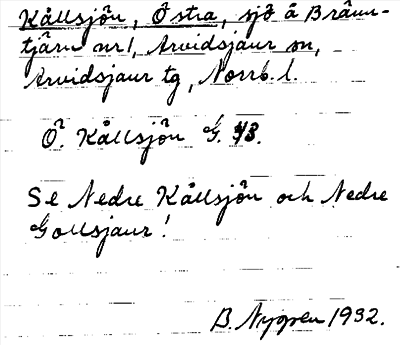 Kållsjön, Östra, sjö å Bränn-
tjärn nr 1, Arvidsjaur sn,
Arvidsjaur tg, Norrb. l.
Ö. Kållsjön G. 43.
Se Nedre Kållsjön och Nedre
Gollsjaur!
B. Nygren 1932.